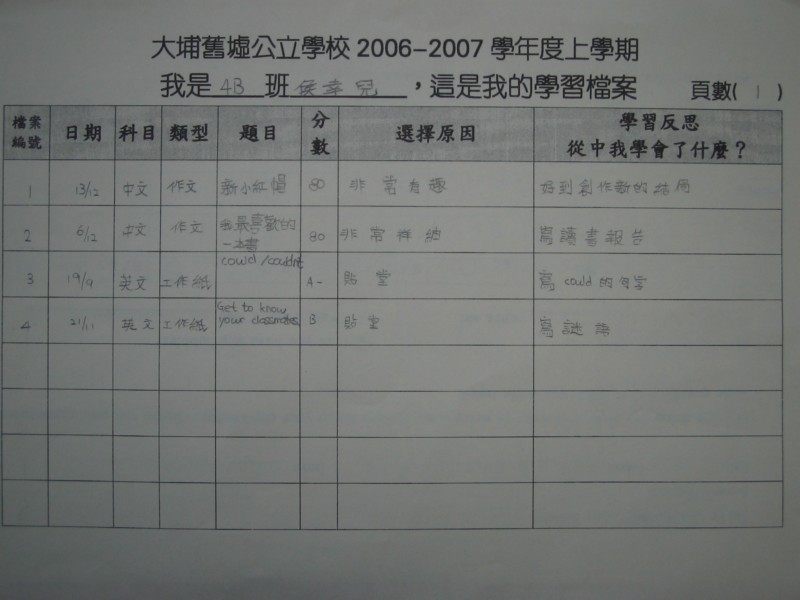 大埔舊墟公立學校 2006-2007 學年度上學期
我是 4B 班 侯幸兒 ，這是我的學習檔案 頁數( 1 )
檔案編號 日期 科目 類型 題目 分數 選擇原因 學習反思 從中我學會了什麼？
1 13/12 中文 作文 新小紅帽 80 非常有趣 好到創作新的結局
2 6/12 中文 作文 我最喜歡的一本書 80 非常詳細 寫讀書報告
3 19/9 英文 工作紙 could/couldn't A- 貼堂 寫 could 的句字
4 21/11 英文 工作紙 Get to know your classmates B 貼堂 寫謎語